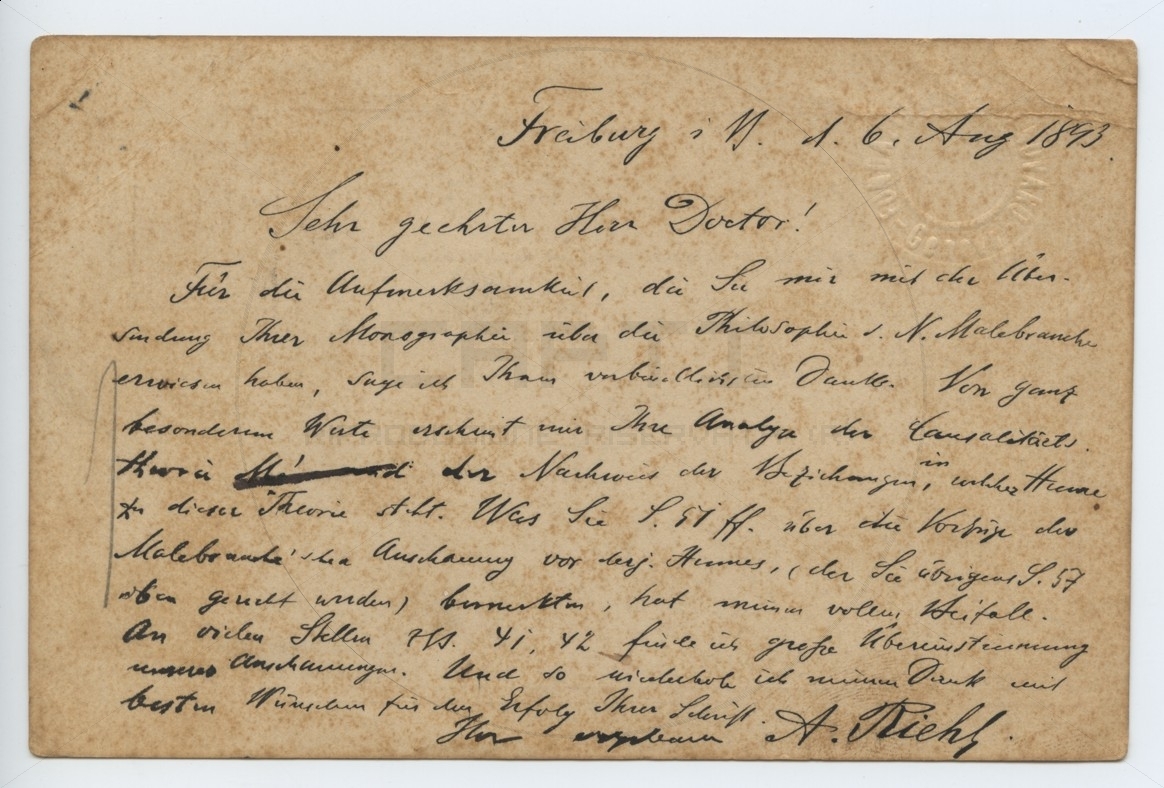 Freiburg i B. d. 6. Aug 1893.
Sehr geehrter Herr Doctor!
Für die Aufmerksamkeit, die Sie mir mit der Über-
sendung Ihrer Monographie über die Philosophie d. N. Malebranche
erwiesen haben, sage ich Ihnen verbindlichsten Dank. Von ganz
besonderem Werte erscheint mir Ihre Analyse der Causalitäts-
theorie der Nachweis der Beziehungen, in welcher Hume
zu dieser Theorie steht. Was Sie S. 51 ff. über die Vorzüge der
Malebranche'schen Anschauung vor derj. Humes, (der Sie übrigens S. 57
eben gerecht werden) bemerkten, hat meinen vollen Beifall.
An vielen Stellen 41, 42 finde ich große Übereinstimmung
unserer Anschauungen. Und so wiederhole ich meinen Dank mit
besten Wünschen für den Erfolg Ihrer Schrift.
Ihr A. Riehl.